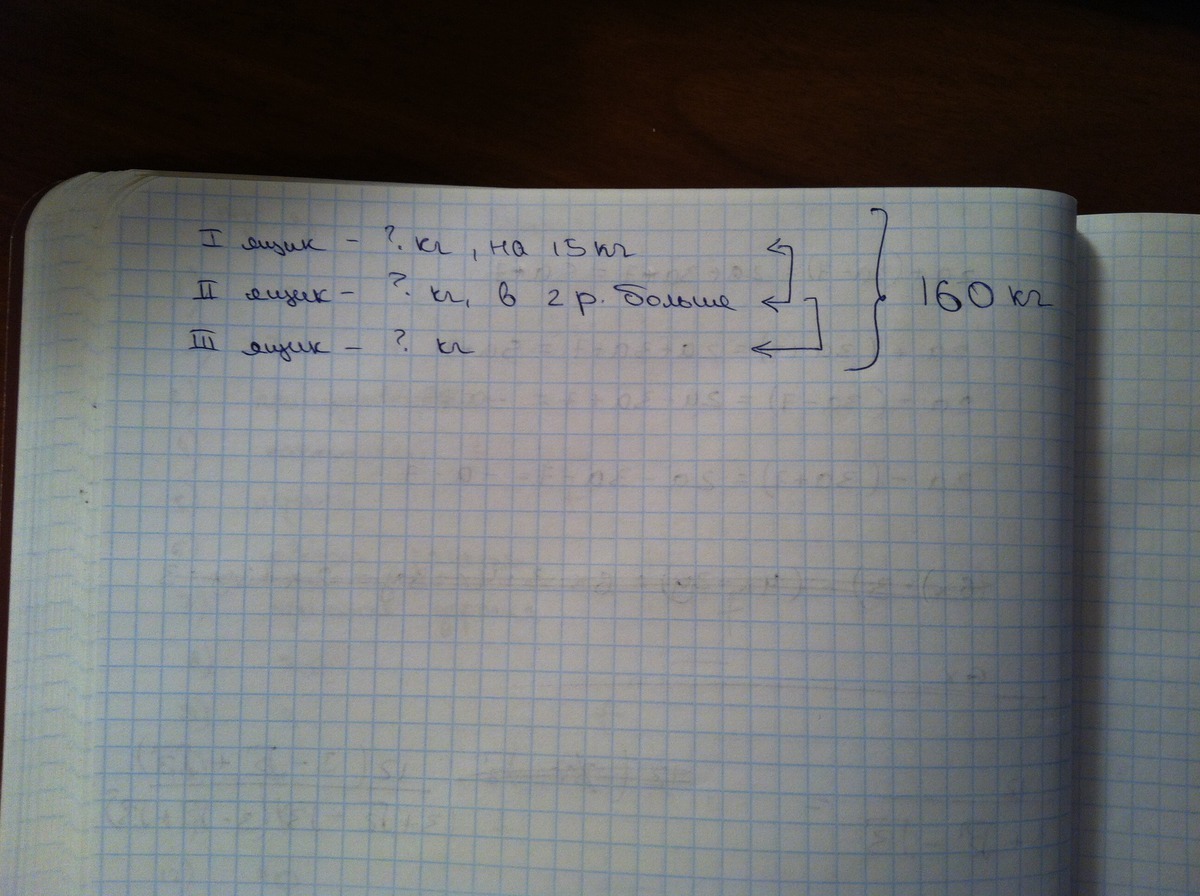 I ящик - ? кг, на 15 кг
II ящик - ? кг, в 2 р. больше
III ящик - ? кг
160 кг